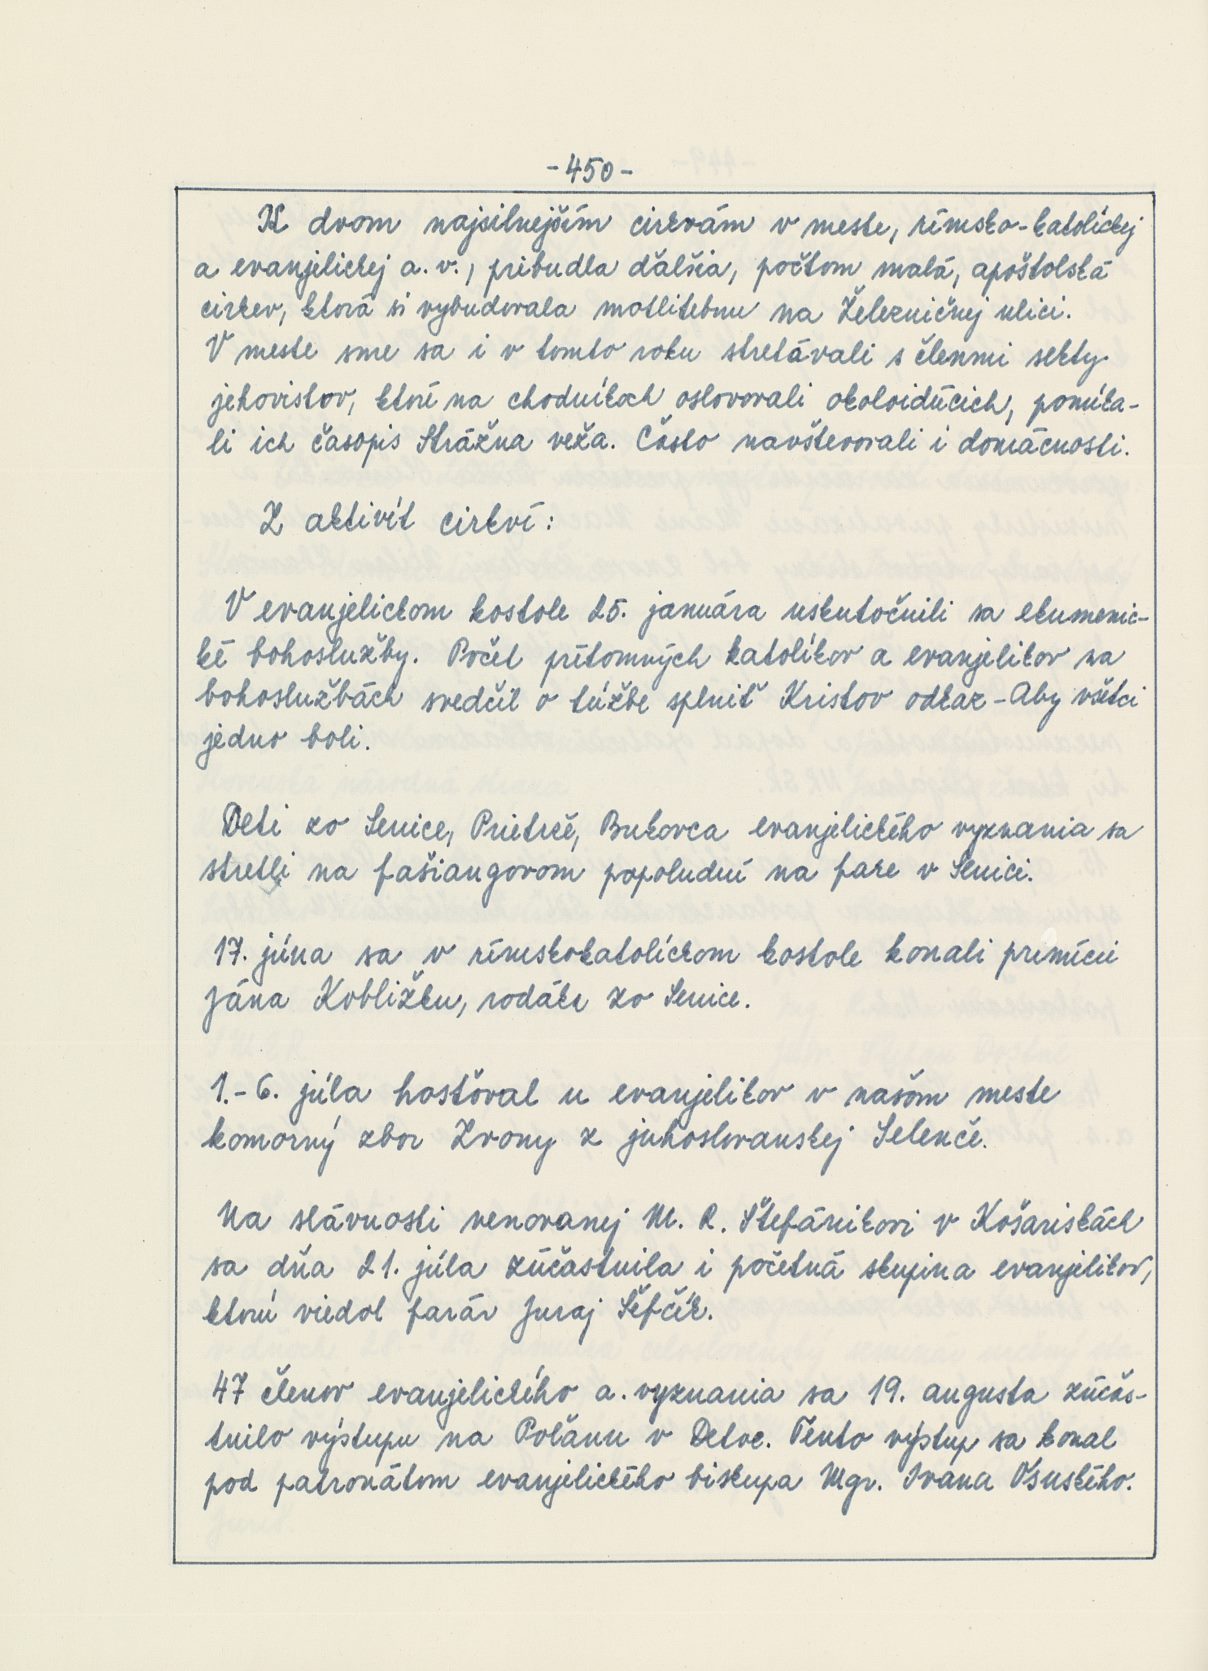 -450-
K dvom najsilnejším cirkvám v meste, rímsko-katolíckej
a evanjelickej a. v., pribudla ďalšia, počtom malá, apoštolská
cirkev, ktorá si vybudovala motlitebnu na Železničnej ulici.
V meste sme sa i v tomto roku stretávali s členmi sekty
jehovistov, ktorí na chodníkoch oslovovali okoloidúcich, ponúka-
li ich časopis Strážna veža. Často navštevovali i domácnosti.
Z aktivít cirkví:
V evanjelickom kostole 25. januára uskutočnili sa ekumenic-
ké bohoslužby. Počet prítomných katolíkov a evanjelikov na
bohoslužbách svedčil o túžbe splniť Kristov odkaz - Aby všetci
jedno boli.
Deti zo Senice, Prietrče, Bukovca evanjelického vyznania sa
stretli na fašiangovom popoludní na fare v Senici.
17. júna sa v rímskokatolíckom kostole konali primície
Jána Kobližku, rodáka zo Senice.
1.-6. júla hosťoval u evanjelikov v našom meste
komorný zbor Zvony z juhoslovanskej Selenče.
Na slávnosti venovanej M. R. Štefánikovi v Košariskách
sa dňa 21. júla zúčastnila i početná skupina evanjelikov,
ktorú viedol farár Juraj Šefčík.
47 členov evanjelického a. vyznania sa 19. augusta zúčas-
tnilo výstupu na Poľanu v Detve. Tento výstup sa konal
pod patronátom evanjelického biskupa Mgr. Ivana Osuského.